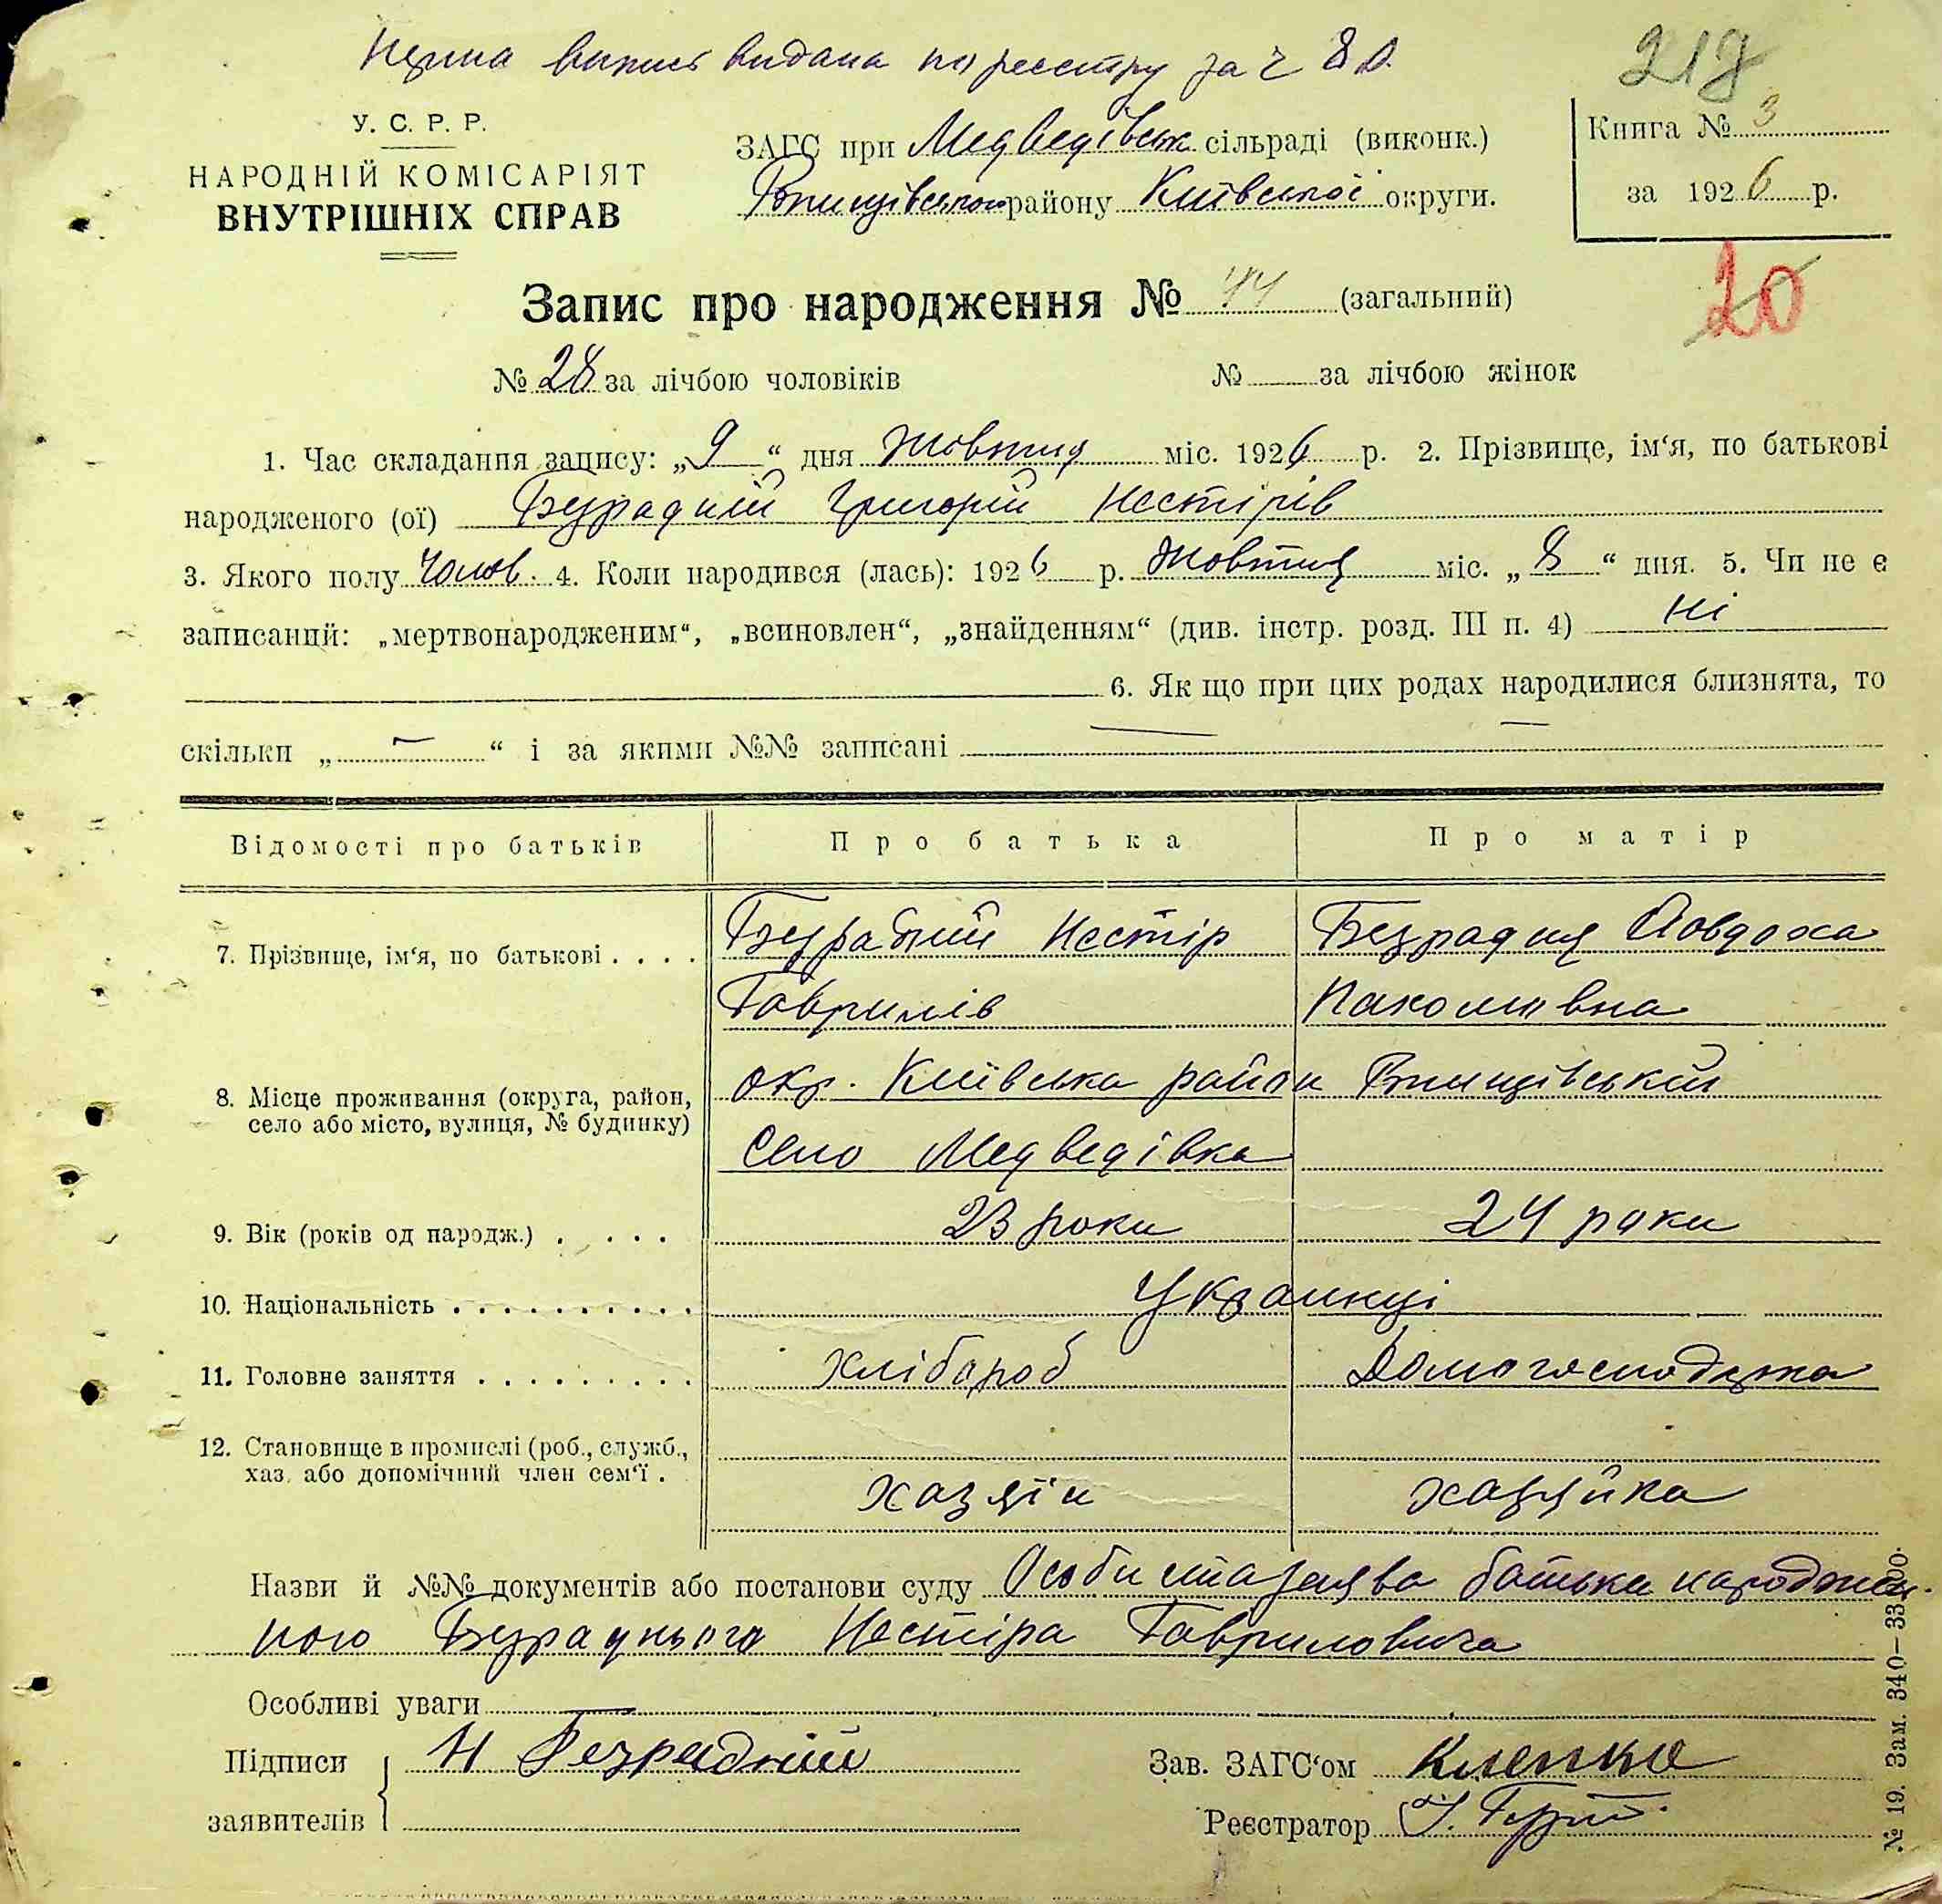 Перша випись видана по реєстру за ч 80.
218
У. С. Р. Р.
НАРОДНІЙ КОМІСАРІЯТ
ВНУТРІШНІХ СПРАВ
ЗАГС при Медведівськ. сільраді (виконк.)
Ржищівського району Київської округи.
Книга № 3
за 1926 р.
20
Запис про народження № 44 (загальний)
№ 28 за лічбою чоловіків № за лічбою жінок
1. Час складання запису: „9“ дня Жовтня міс. 1926 р. 2. Прізвище, ім‘я, по батькові
народженого (ої) Безрадній Григорій Нестірів
3. Якого полу Чолов. 4. Коли народився (лась): 1926 р. Жовтня міс. „8“ дня. 5. Чи не є
записаний: „мертвонародженим“, „всиновлен“, „знайденням“ (див. інстр. розд. III п. 4) Ні
6. Як що при цих родах народилися близнята, то
скільки „ — “ і за якими №№ записані —
Відомості про батьків Про батька Про матір
7. Прізвище, ім‘я, по батькові . . . . Безрадний Нестір Безрадня Явдоха
Гаврилів Пахомівна
8. Місце проживання (округа, район, окр. Київська район Ржищівський
село або місто, вулиця, № будинку) Село Медведівка
9. Вік (років од народж.) . . . . . 23 роки 24 роки
10. Національність . . . . . . . . . . Українці
11. Головне заняття . . . . . . . . . Хлібороб Домогосподарка
12. Становище в промислі (роб., служб.,
хаз. або допомічний член сем‘ї . хазяїн хазяйка
Назви й №№ документів або постанови суду Особиста заява батька народжен-
ного Безраднього Нестіра Гавриловича
Особливі уваги
Підписи Н Безрадній Зав. ЗАГС‘ом Кленко
заявителів Реєстратор
№ 19. Зам. 340—33.000.